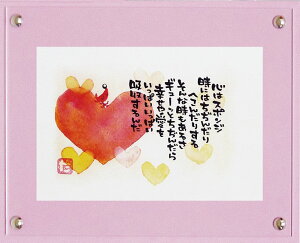 心はスポンジ
時にはちぢんだり
へこんだりする
そんな時もあるさ
ギューことちぢんだら
幸せや愛を
いっぱいいっぱい
吸収するんだ